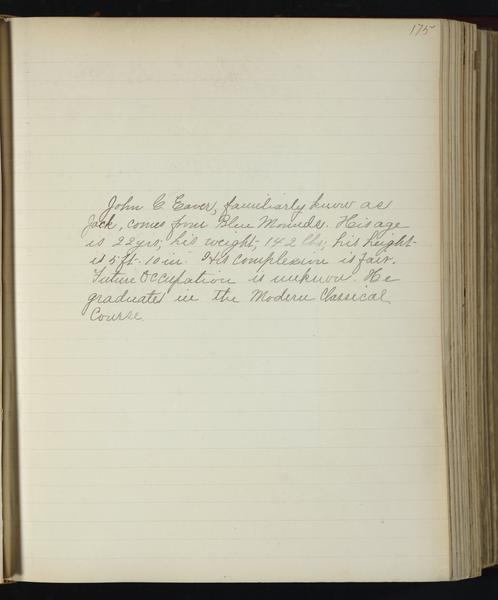 175
John C Eaver, familiarly know as
Jack, comes from Blue Mounds. His age
is 22 yrs; his weight, 142 lbs; his height
is 5 ft. 10 in. His complexion is fair.
Future Occupation is unknown. He
graduates in the Modern Classical
Course.